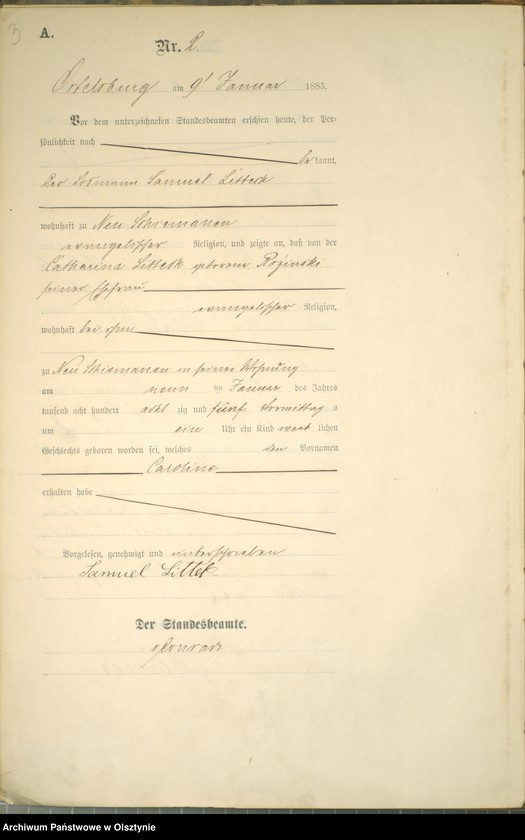 3
A.
Nr. 2.
Ortelsburg am 9t Januar 1885.
Vor dem unterzeichneten Standesbeamten erschien heute, der Per-
sönlichkeit nach
be kannt,
der Losmann Samuel Litteck
wohnhaft zu Neu Schiemanen
evangelischer Religion, und zeigte an, daß von der
Catharina Litteck geborene Rozinski
seiner Ehefrau
evangelischer Religion,
wohnhaft bei ihm
zu Neu Schiemanen in seiner Wohnung
am neun ten Januar des Jahres
tausend acht hundert acht zig und fünf Vormittags
um ein Uhr ein Kind weib lichen
Geschlechts geboren worden sei, welches den Vornamen
Caroline
erhalten habe
Vorgelesen, genehmigt und unterschrieben
Samuel Littek
Der Standesbeamte.
Archiwum Państwowe w Olsztynie